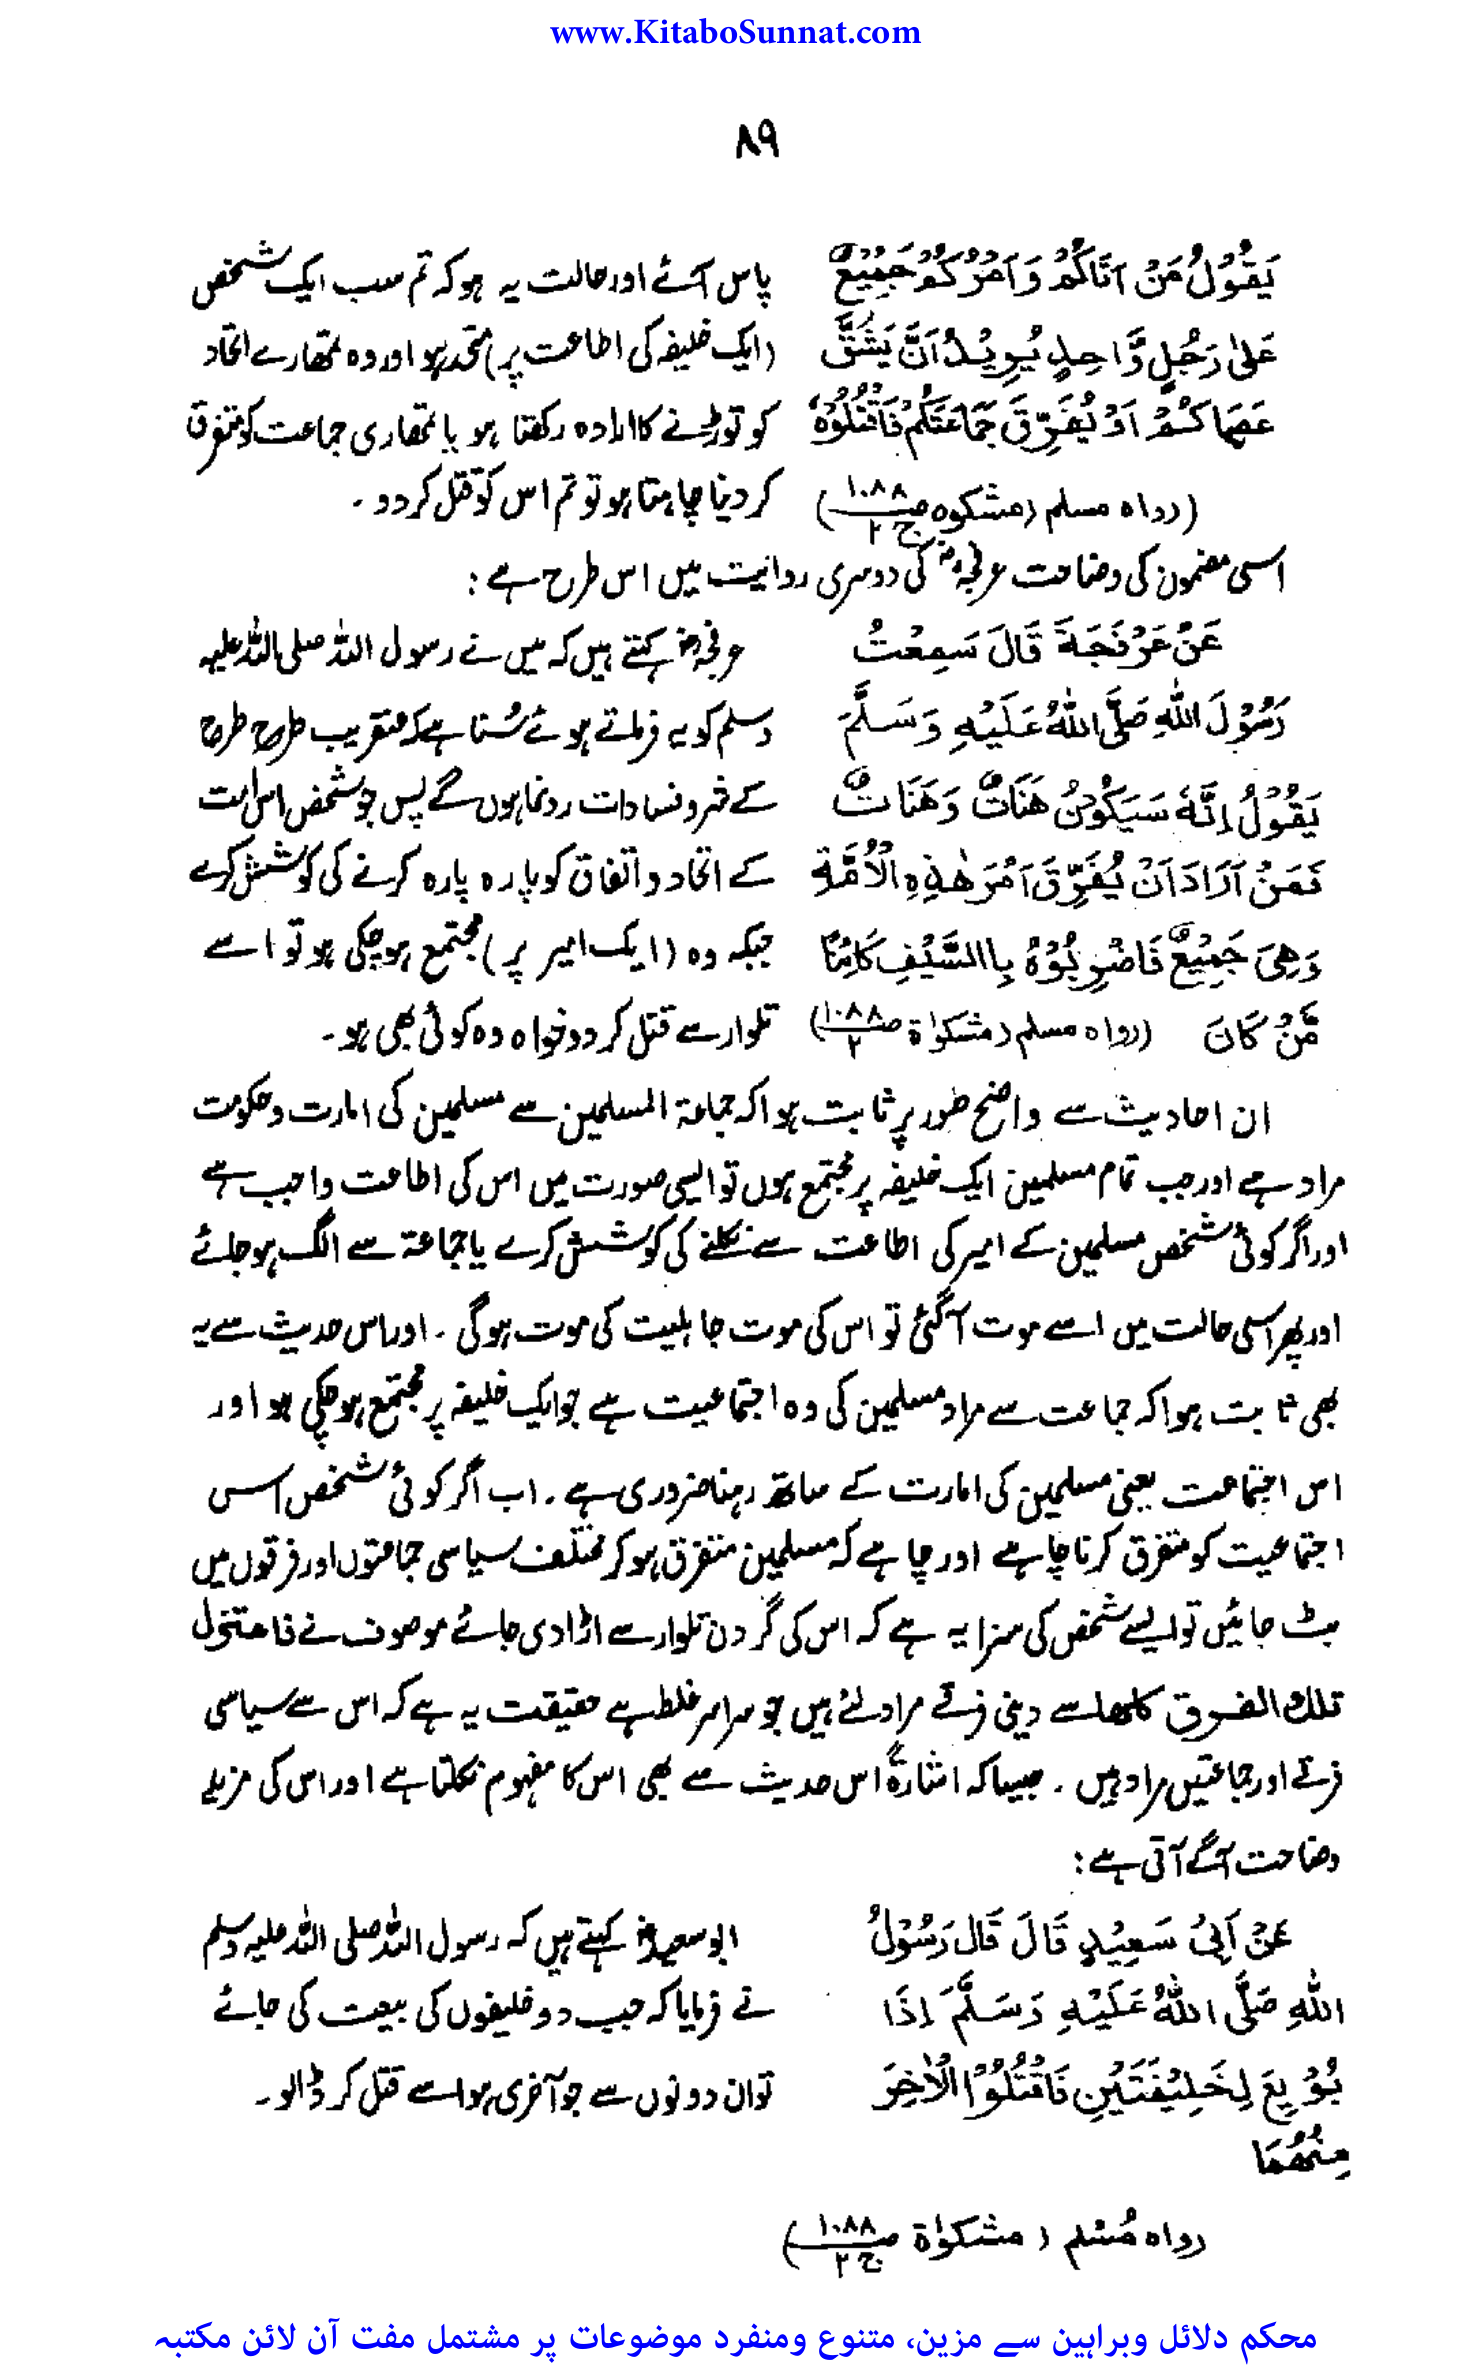 www.KitaboSunnat.com
۸۹
یَقُوْلُ مَنْ اَتَاکُمْ وَاَمْرُکُمْ جَمِیْعٌ
عَلٰی رَجُلٍ وَّاحِدٍ یُرِیْدُ اَنْ یَّشُقَّ
عَصَاکُمْ اَوْ یُفَرِّقَ جَمَاعَتَکُمْ فَاقْتُلُوْہُ
(رواہ مسلم (مشکوہ ص ۱۰۸۸ ج ۲)
پاس آئے اور حالت یہ ہو کہ تم سب ایک شخص
(ایک خلیفہ کی اطاعت پر) متحد ہو اور وہ تمھارے اتحاد
کو توڑنے کا ارادہ رکھتا ہو یا تمھاری جماعت کو متفرق
کر دینا چاہتا ہو تو تم اس کو قتل کر دو ۔
اسی مضمون کی وضاحت عرفجہؓ کی دوسری روایت میں اس طرح ہے :
عَنْ عَرْفَجَةَ قَالَ سَمِعْتُ
رَسُوْلَ اللّٰہِ صَلَّی اللّٰہُ عَلَیْہِ وَسَلَّمَ
یَقُوْلُ اِنَّہٗ سَیَکُوْنُ ھَنَاتٌ وَھَنَاتٌ
فَمَنْ اَرَادَ اَنْ یُّفَرِّقَ اَمْرَ ھٰذِہِ الْاُمَّةِ
وَھِیَ جَمِیْعٌ فَاضْرِبُوْہُ بِاالسَّیْفِ کَائِنًا
مَّنْ کَانَ (رواہ مسلم (مشکوٰۃ ص ۱۰۸۸ ۲)
عرفجہؓ کہتے ہیں کہ میں نے رسول اللہ صلی اللہ علیہ
وسلم کو یہ فرماتے ہوئے سُنا ہے کہ عنقریب طرح طرح
کے شر و فسادات رونما ہوں گے پس جو شخص اس امت
کے اتحاد و اتفاق کو پارہ پارہ کرنے کی کوشش کرے
جبکہ وہ (ایک امیر پر) مجتمع ہو چکی ہو تو اسے
تلوار سے قتل کر دو خواہ وہ کوئی بھی ہو ۔
ان احادیث سے واضح طور پر ثابت ہوا کہ جماعۃ المسلمین سے مسلمین کی امارت و حکومت
مراد ہے اور جب تمام مسلمین ایک خلیفہ پر مجتمع ہوں تو ایسی صورت میں اس کی اطاعت واجب ہے
اور اگر کوئی شخص مسلمین کے امیر کی اطاعت سے نکلنے کی کوشش کرے یا جماعۃ سے الگ ہو جائے
اور پھر اسی حالت میں اسے موت آگئی تو اس کی موت جاہلیت کی موت ہوگی ۔ اور اس حدیث سے یہ
بھی ثابت ہوا کہ جماعت سے مراد مسلمین کی وہ اجتماعیت ہے جو ایک خلیفہ پر مجتمع ہو چکی ہو اور
اس اجتماعیت یعنی مسلمین کی امارت کے ساتھ رہنا ضروری ہے ۔ اب اگر کوئی شخص اس
اجتماعیت کو متفرق کرنا چاہے اور چاہے کہ مسلمین متفرق ہو کر مختلف سیاسی جماعتوں اور فرقوں میں
بٹ جائیں تو ایسے شخص کی سزا یہ ہے کہ اس کی گردن تلوار سے اڑا دی جائے موصوف نے فاعتزل
تلك الفرق كلها سے دینی فرقے مراد لئے ہیں جو سراسر غلط ہے حقیقت یہ ہے کہ اس سے سیاسی
فرقے اور جماعتیں مراد ہیں ۔ جیسا کہ اشارۃً اس حدیث سے بھی اس کا مفہوم نکلتا ہے اور اس کی مزید
وضاحت آگے آتی ہے :
عَنْ اَبِیْ سَعِیْدٍ قَالَ قَالَ رَسُوْلُ
اللّٰہِ صَلَّی اللّٰہُ عَلَیْہِ وَسَلَّمَ اِذَا
بُوْیِعَ لِخَلِیْفَتَیْنِ فَاقْتُلُوْا الْاٰخِرَ
مِنْھُمَا
رواہ مُسْلم (مشکوٰۃ ص ۱۰۸۸ ج ۲)
ابو سعیدؓ کہتے ہیں کہ رسول اللہ صلی اللہ علیہ وسلم
نے فرمایا کہ جب دو خلیفوں کی بیعت کی جائے
تو ان دونوں سے جو آخری ہو اسے قتل کر ڈالو ۔
محکم دلائل وبراہین سے مزین، متنوع ومنفرد موضوعات پر مشتمل مفت آن لائن مکتبہ